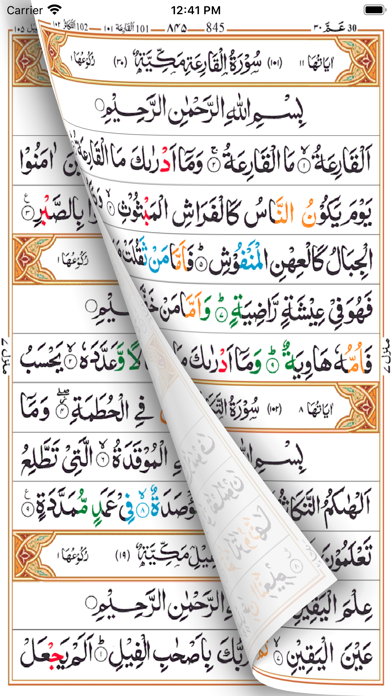 Carrier 12:41 PM
30 عـمّ ٣٠ 845 ٨٤٥ 101 القارعة ١٠١ 102 التكاثر ١٠٢
اٰيَاتُهَا ١١ (١٠١) سُوْرَةُ الْقَارِعَةِ مَكِّيَّةٌ (٣٠) رُكُوْعُهَا ١
بِسْمِ اللهِ الرَّحْمٰنِ الرَّحِيْمِ
اَلْقَارِعَةُ ۙ١ مَا الْقَارِعَةُ ۚ٢ وَمَاۤ اَدْرٰىكَ مَا الْقَارِعَةُ اٰمَنُوْا
يَوْمَ يَكُوْنُ النَّاسُ كَالْفَرَاشِ الْمَبْثُوْثِ بِالصَّبْرِ
الْجِبَالُ كَالْعِهْنِ الْمَنْفُوْشِ ؕ٥ فَاَمَّا مَنْ ثَقُلَتْ رُكُوْعُهَا ١
فَهُوَ فِيْ عِيْشَةٍ رَّاضِيَةٍ ؕ٧ وَاَمَّا مَنْ خَفَّتْ
فَاُمُّهٗ هَاوِيَةٌ ؕ٩ وَمَاۤ اَدْرٰىكَ مَا وَّعَدَّدَهٗ ۙ٢ يَحْسَبُ
اٰيَاتُهَا ٨ (١٠٢) سُوْرَةُ فِي الْحُطَمَةِ ۖ٤ وَمَاۤ
بِسْمِ اللهِ الْمُوْقَدَةُ ۙ٦ الَّتِيْ تَطَّلِعُ
اَلْهٰىكُمُ التَّكَاثُرُ مُّؤْصَدَةٌ ۙ٨ فِيْ عَمَدٍ مُّمَدَّدَةٍ ٩
تَعْلَمُوْنَ مَكِّيَّةٌ (١٩) رُكُوْعُهَا ١
عِلْمَ الْيَقِيْنِ الرَّحْمٰنِ الرَّحِيْمِ
عَيْنَ الْيَقِيْنِ رَبُّكَ بِاَصْحٰبِ الْفِيْلِ ؕ١ اَلَمْ يَجْعَلْ